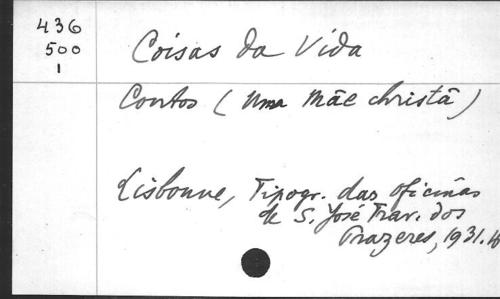 436
500
1
Coisas da Vida
Contos (Uma Mãe christã)
Lisbonne, Tipogr. das oficinas
de S. José Trav. dos
Prazeres, 1931.